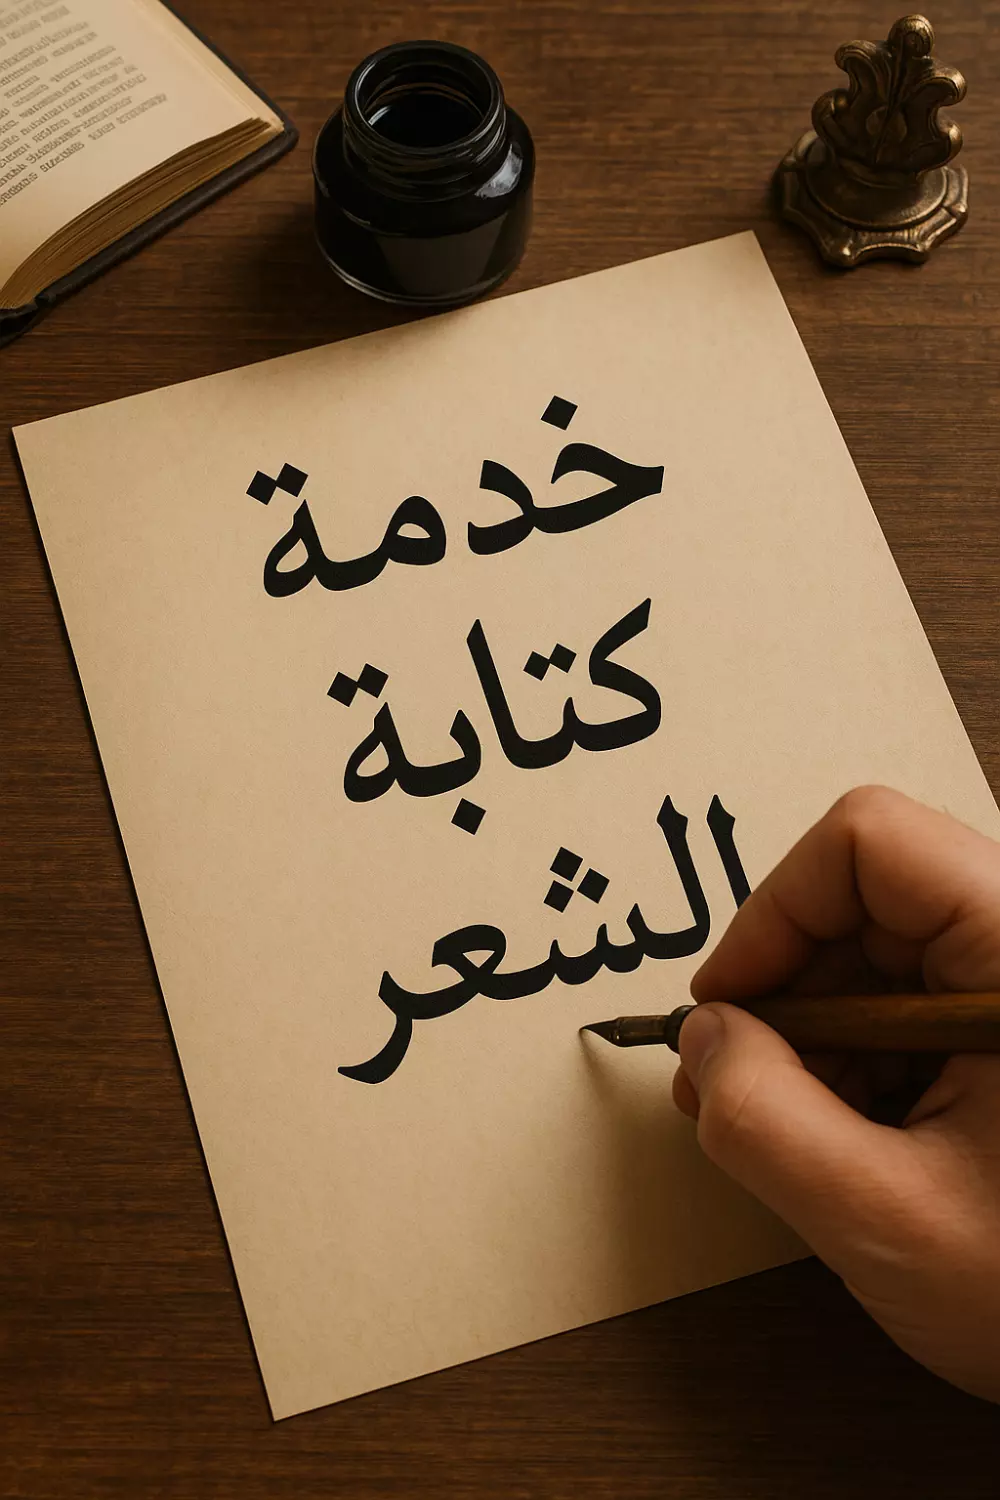 خدمة
كتابة
الشعر